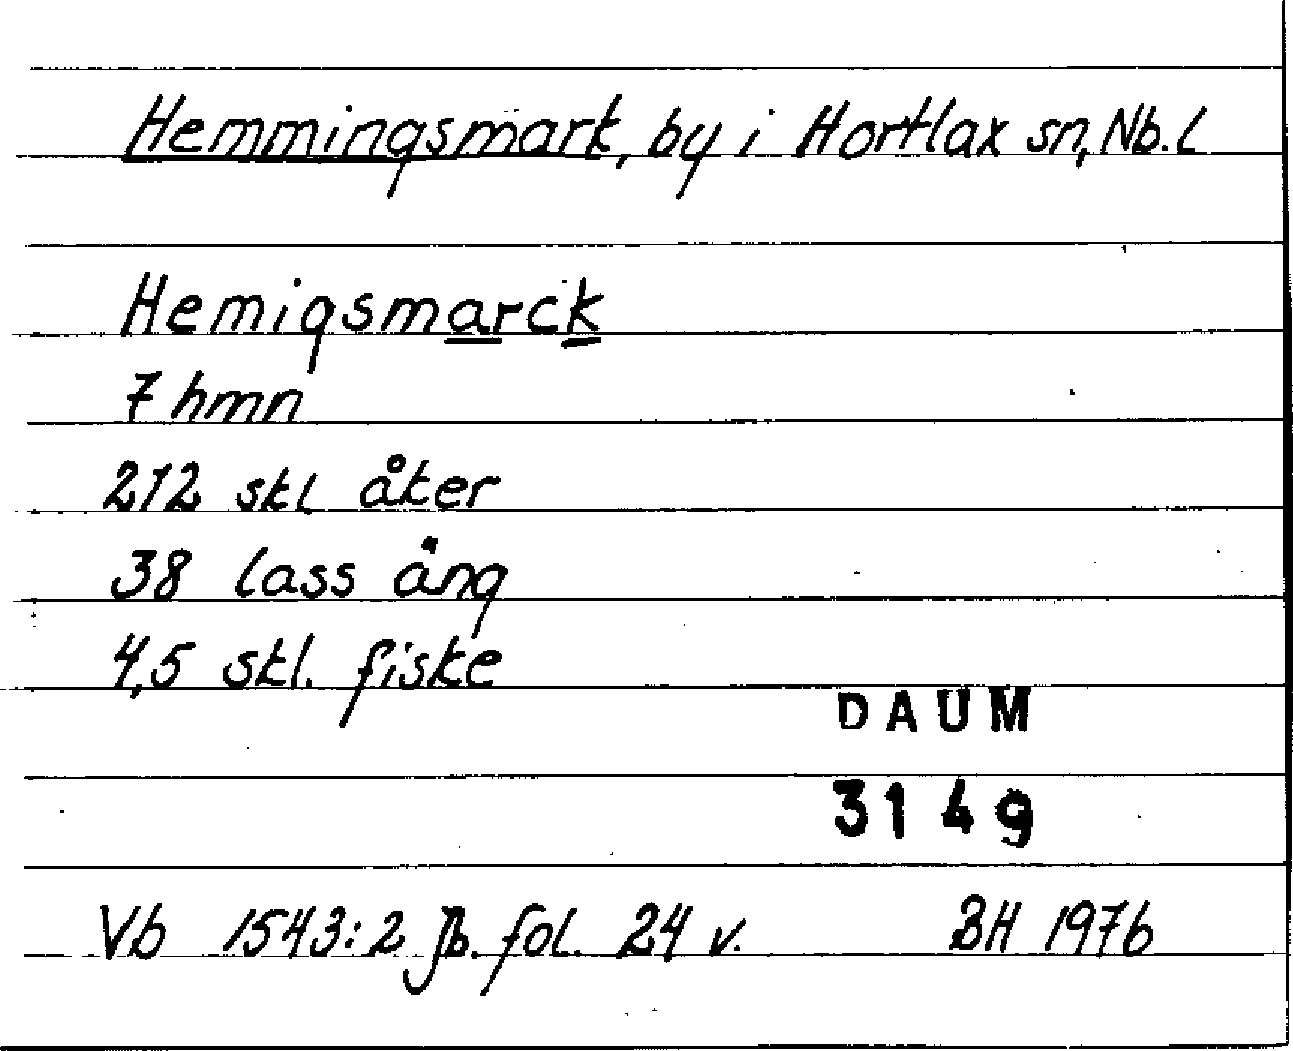 Hemmingsmark, by i Hortlax sn, Nb. L
Hemigsmarck
7 hmn
212 skl åker
38 lass äng
4,5 skl. fiske
DAUM
3149
Vb 1543:2 Jb. fol. 24 v. BH 1976